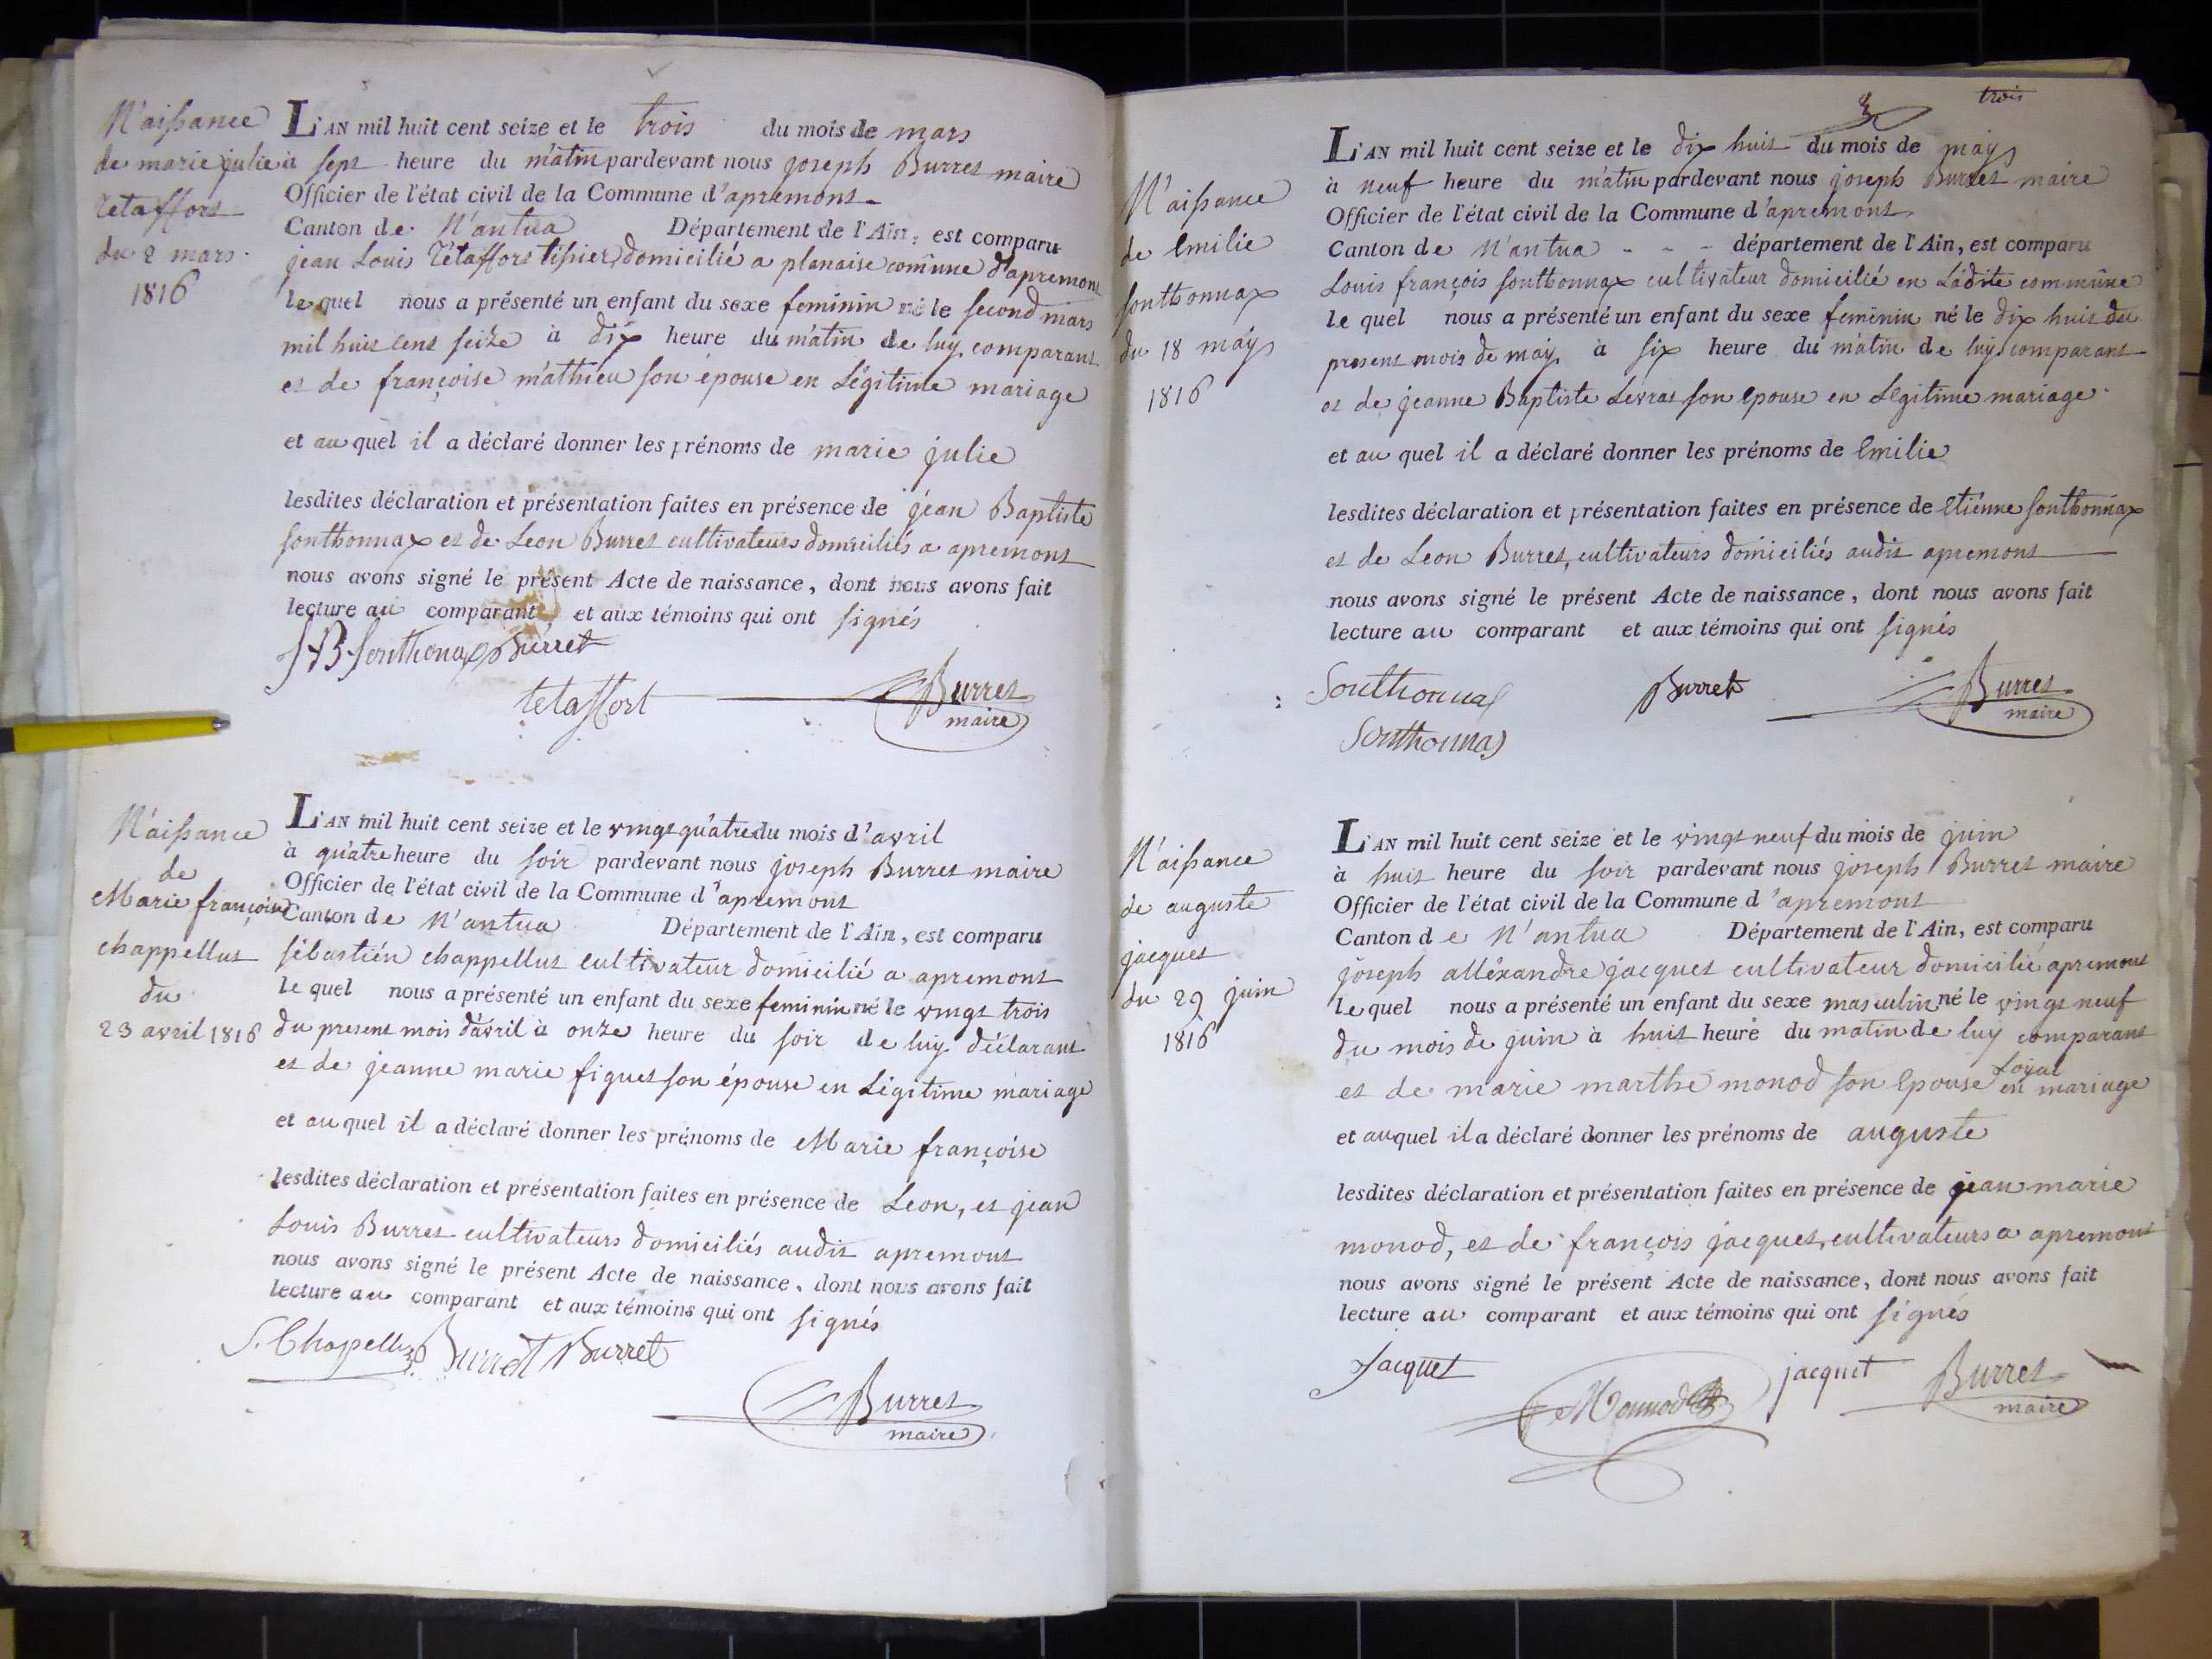 N'aissance
de marie julie
tetaffort
du 2 mars
1816
L'AN mil huit cent seize et le trois du mois de mars
à sept heure du matin pardevant nous joseph Burret maire
Officier de l'état civil de la Commune d'apremont
Canton de N'antua Département de l'Ain, est comparu
jean Louis Tetaffort tissier domicilié a planaise commune d'apremont
le quel nous a présenté un enfant du sexe feminin né le second mars
mil huit cent seize à dix heure du matin de luy comparant
et de françoise mathieu son épouse en Légitime mariage
et au quel il a déclaré donner les prénoms de marie julie
lesdites déclaration et présentation faites en présence de jean Baptiste
sonthonnax et de Leon Burret cultivateurs domiciliés a apremont
nous avons signé le présent Acte de naissance, dont nous avons fait
lecture au comparant, et aux témoins qui ont signés
JB Sonthonax Burret
tetaffort Burret
maire
N'aissance
de
Marie françoise
chappellut
du
23 avril 1816
L'AN mil huit cent seize et le vingt quatre du mois d'avril
à quatre heure du soir pardevant nous joseph Burret maire
Officier de l'état civil de la Commune d'apremont
Canton de N'antua Département de l'Ain, est comparu
sébastién chappellut cultivateur domicilié a apremont
le quel nous a présenté un enfant du sexe feminin né le vingt trois
du present mois d'avril à onze heure du soir de luy déclarant
et de jeanne marie figuet son épouse en Légitime mariage
et au quel il a déclaré donner les prénoms de Marie françoise
lesdites déclaration et présentation faites en présence de Leon, et jean
Louis Burret cultivateurs domiciliés audit apremont
nous avons signé le présent Acte de naissance, dont nous avons fait
lecture au comparant et aux témoins qui ont signés
S. Chapellu Burret Burret
Burret
maire
3 trois
N'aissance
de Emilie
sonthonnax
du 18 mays
1816
L'AN mil huit cent seize et le dix huit du mois de mays
à neuf heure du matin pardevant nous joseph Burret maire
Officier de l'état civil de la Commune d'apremont
Canton de N'antua - - - département de l'Ain, est comparu
Louis françois sonthonnax cultivateur domicilié en Ladite commune
le quel nous a présenté un enfant du sexe feminin né le dix huit du
present mois de may à six heure du matin de luy comparant
et de jeanne Baptiste Levrat son epouse en Légitime mariage
et au quel il a déclaré donner les prénoms de Emilie
lesdites déclaration et présentation faites en présence de Etiénne sonthonnax
et de Leon Burret, cultivateurs domiciliés audit apremont
nous avons signé le présent Acte de naissance, dont nous avons fait
lecture au comparant et aux témoins qui ont signés
Sonthonnax Burret Burret
maire
Sonthonnax
N'aissance
de auguste
jacquet
du 29 juin
1816
L'AN mil huit cent seize et le vingt neuf du mois de juin
à huit heure du soir pardevant nous joseph Burret maire
Officier de l'état civil de la Commune d'apremont
Canton de N'antua Département de l'Ain, est comparu
joseph alléxandre jacquet cultivateur domicilié apremont
le quel nous a présenté un enfant du sexe masculin né le vingt neuf
du mois de juin à huit heure du matin de luy comparant
et de marie marthe monod son epouse en Loyal mariage
et auquel il a déclaré donner les prénoms de auguste
lesdites déclaration et présentation faites en présence de jean marie
monod, et de françois jacquet, cultivateurs a apremont
nous avons signé le présent Acte de naissance, dont nous avons fait
lecture au comparant et aux témoins qui ont signés
Jacquet Monnod jacquet Burret
maire